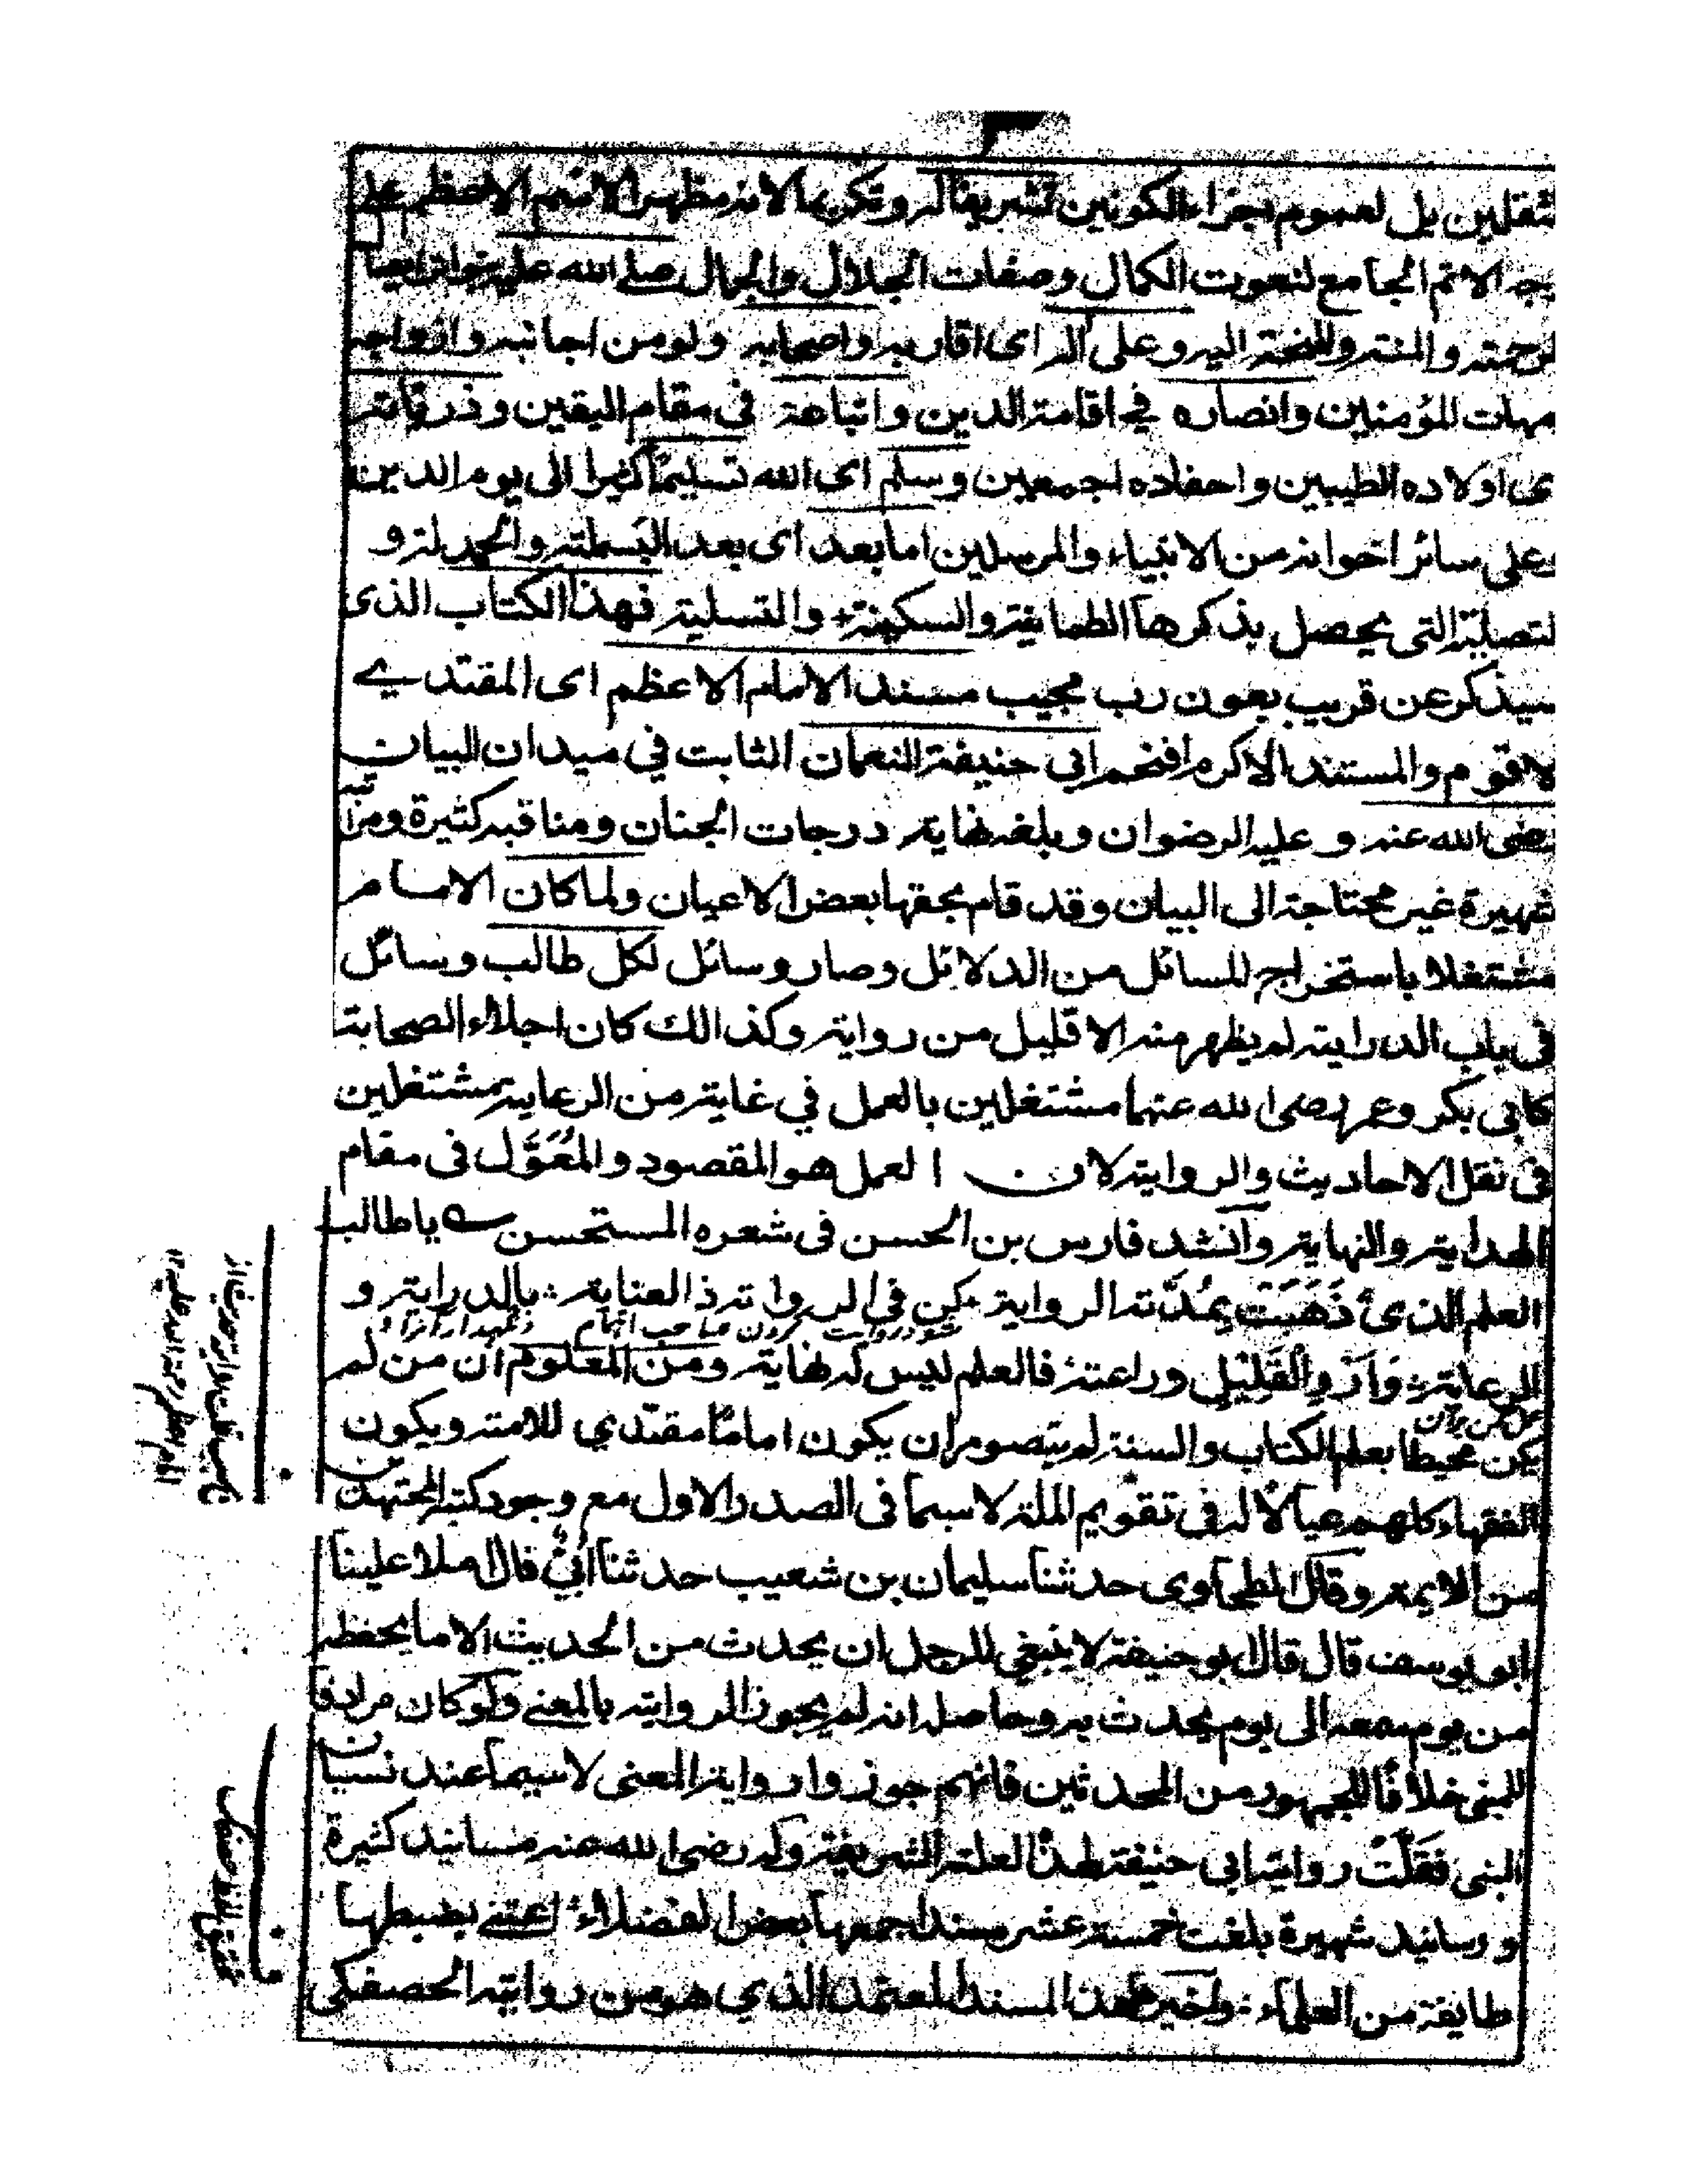 ثقلين بل لعموم اجزاء الكونين تشريفا له وتكريما لانه مظهر الاسم الاعظم على
الاتم الجامع لنعوت الكمال وصفات الجلال والجمال صلى الله عليه
لرحمته والمنته والمنحته اليه وعلى آله اى اقاربه واصحابه ولو من اجانبه وازواجه
مهات المؤمنين وانصاره في اقامة الدين واتباعه فى مقام اليقين وذرياته
ى اولاده الطيبين واحفاده اجمعين وسلم اى الله تسليمًا كثيرا الى يوم الدين
وعلى سائر اخوانه من الانبياء والمرسلين اما بعد اى بعد البسملة والحمدلة و
لتصلية التى يحصل بذكرها الطمانية والسكينة والتسلية فهذا الكتاب الذى
سيذكر عن قريب بعون رب مجيب مسند الامام الاعظم اى المقتدى
لاقوم والمستند الاكرم افخم ابى حنيفة النعمان الثابت في ميدان البيان
رضى الله عنه وعليه الرضوان وبلغه نهاية درجات الجنان ومناقبه كثيرة ومراتبه
شهيرة غير محتاجة الى البيان وقد قام بحقها بعض الاعيان ولما كان الامام
مشتغلا باستخراج المسائل من الدلائل وصار وسائل لكل طالب وسائل
فى باب الدراية لم يظهر منه الا قليل من رواية وكذالك كان اجلاء الصحابة
كابى بكر وعمر رضى الله عنهما مشتغلين بالعمل في غاية من الرعاية مشتغلين
فى نقل الاحاديث والرواية لان العمل هو المقصود والمُعَوَّل فى مقام
الهداية والنهاية وانشد فارس بن الحسن فى شعره المستحسن يا طالب
العلم الذى ذَهَبَت بمُدّته الرواية كن فى الرواية ذا العناية بالدراية و
الرعاية وَارْوِ القَلِيْل وراعته فالعلم ليس له نهاية ومن المعلوم ان من لم
يكن محيطا بعلم الكتاب والسنة لم يتصور ان يكون امامًا مقتدى للامة ويكون
الفقهاء كلهم عيالًا له فى تقويم الملة لا سيما فى الصدر الاول مع وجود كثرة المجتهدين
من الايمة وقال الطحاوى حدثنا سليمان بن شعيب حدثنا ابى قال املا علينا
ابو يوسف قال قال ابو حنيفة لا ينبغى للرجل ان يحدث من الحديث الا ما يحفظه
من يوم سمعه الى يوم يحدث به وحاصله انه لم يجوز الرواية بالمعنى ولو كان مرادفا
للمبنى خلافًا للجمهور من المحدثين فانهم جوزوا رواية المعنى لا سيما عند نسيان
المبنى فقَلَّت رواية ابى حنيفة لهذه العلة الشريفة وله رضى الله عنه مسانيد كثيرة
و رسانيد شهيرة بلغت خمسة عشر مسندا جمعها بعض الفضلاء اعتنى بضبطها
طايفة من العلماء واخيرها هذا المسند المعتمد الذى هو من رواية الحصفكى